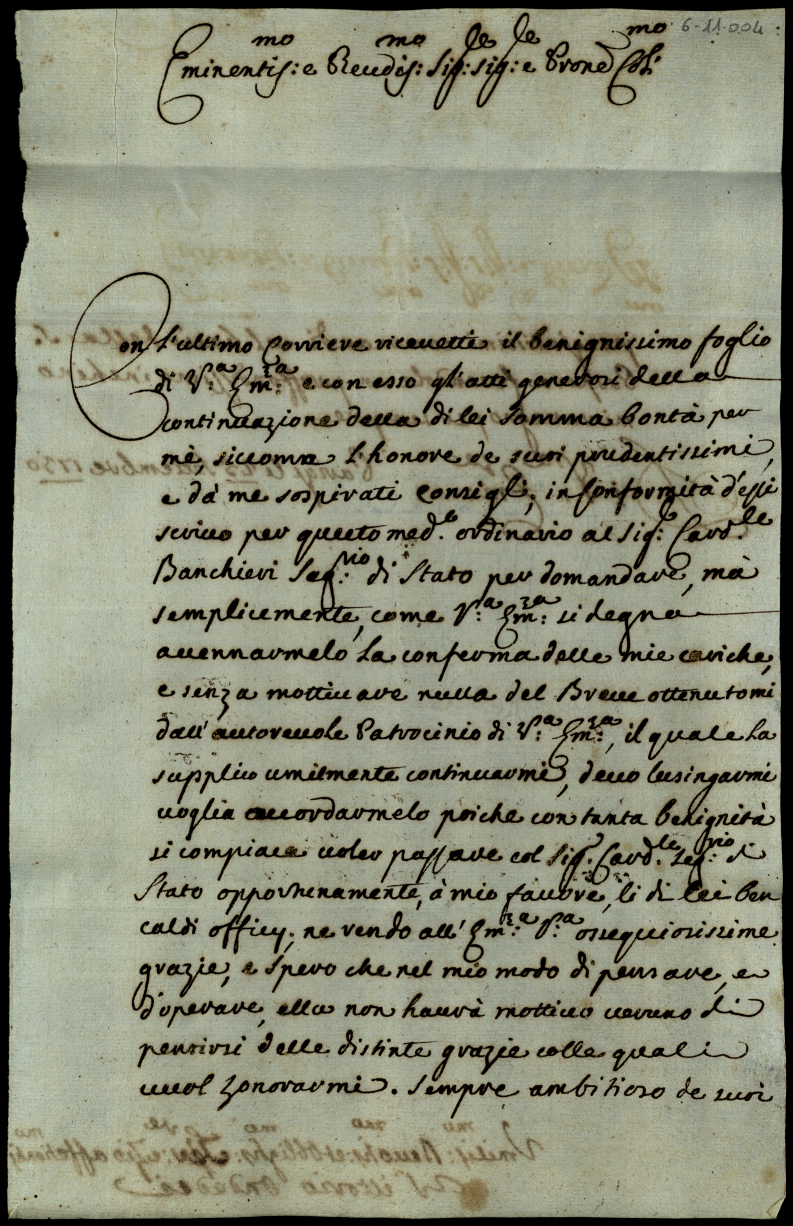 6-11-004
Eminentis:mo e Reudis:mo Sig:re Sig:re e Prone Col:mo
Con l'ultimo Corriere riceuetti il benignissimo foglio
di V:a Em:za e con esso gl'atti generosi della
continuazione della di lei somma bontà per
mè, siccome l'honore de suoi prudentissimi,
e dà me sospirati consigli; in conformità d'essi
scriuo per questo med:o ordinario al Sig:r Card:le
Banchieri Seg:rio di Stato per domandare, mà
semplicemente, come V:a Em:za si degna
accennarmelo la conferma delle mie cariche,
e senza mottiuare nulla del Breue ottenutomi
dall'autoreuole Patrocinio di V:a Em:za, il quale la
supplico umilmente continuarmi, deuo lusingarmi
uoglia accordarmelo poiche con tanta benignità
si compiace uoler passare col Sig:r Card:le Seg:rio di
Stato opportunamente, à mio fauore, li di lei ben
caldi officy; ne rendo all'Em:za V:a ossequiosissime
grazie, e spero che nel mio modo di pensare, e
d'operare, ella non haurà mottiuo ueruno di
pentirsi delle distinte grazie colle quali
uuol honorarmi. Sempre ambitioso de suoi